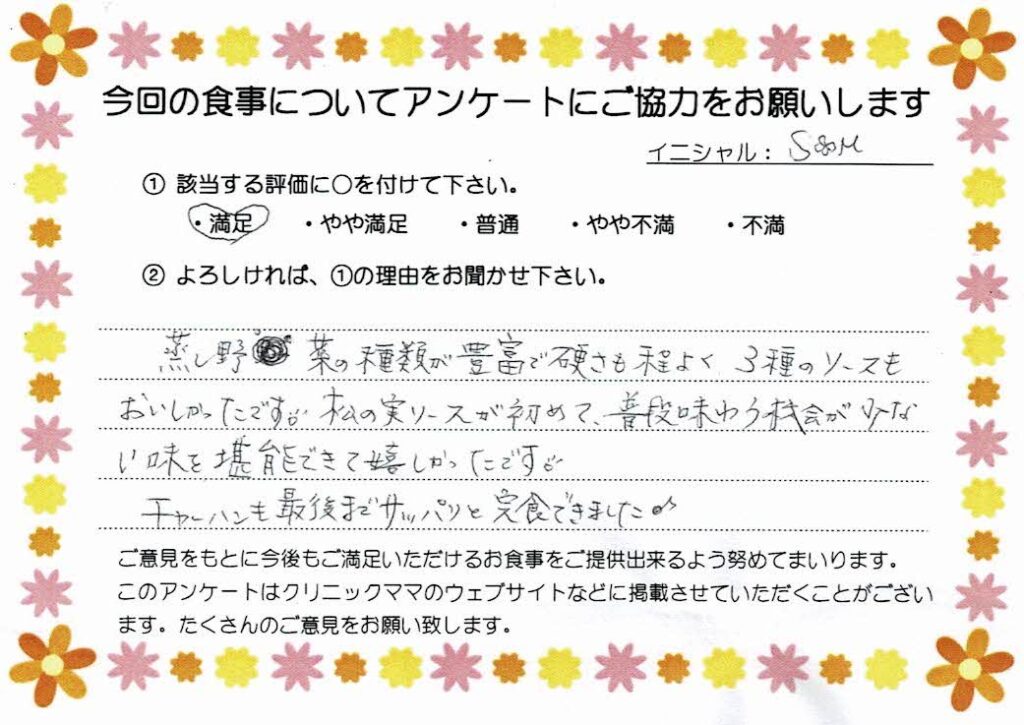 今回の食事についてアンケートにご協力をお願いします
イニシャル：
① 該当する評価に〇を付けて下さい。
・満足 ・やや満足 ・普通 ・やや不満 ・不満
② よろしければ、①の理由をお聞かせ下さい。
蒸し野菜の種類が豊富で硬さも程よく 3種のソースも
おいしかったです。松の実ソースが初めて、普段味わう機会が少な
い味を堪能できて嬉しかったです。
チャーハンも最後までサッパリと完食できました
ご意見をもとに今後もご満足いただけるお食事をご提供出来るよう努めてまいります。
このアンケートはクリニックママのウェブサイトなどに掲載させていただくことがござい
ます。たくさんのご意見をお願い致します。